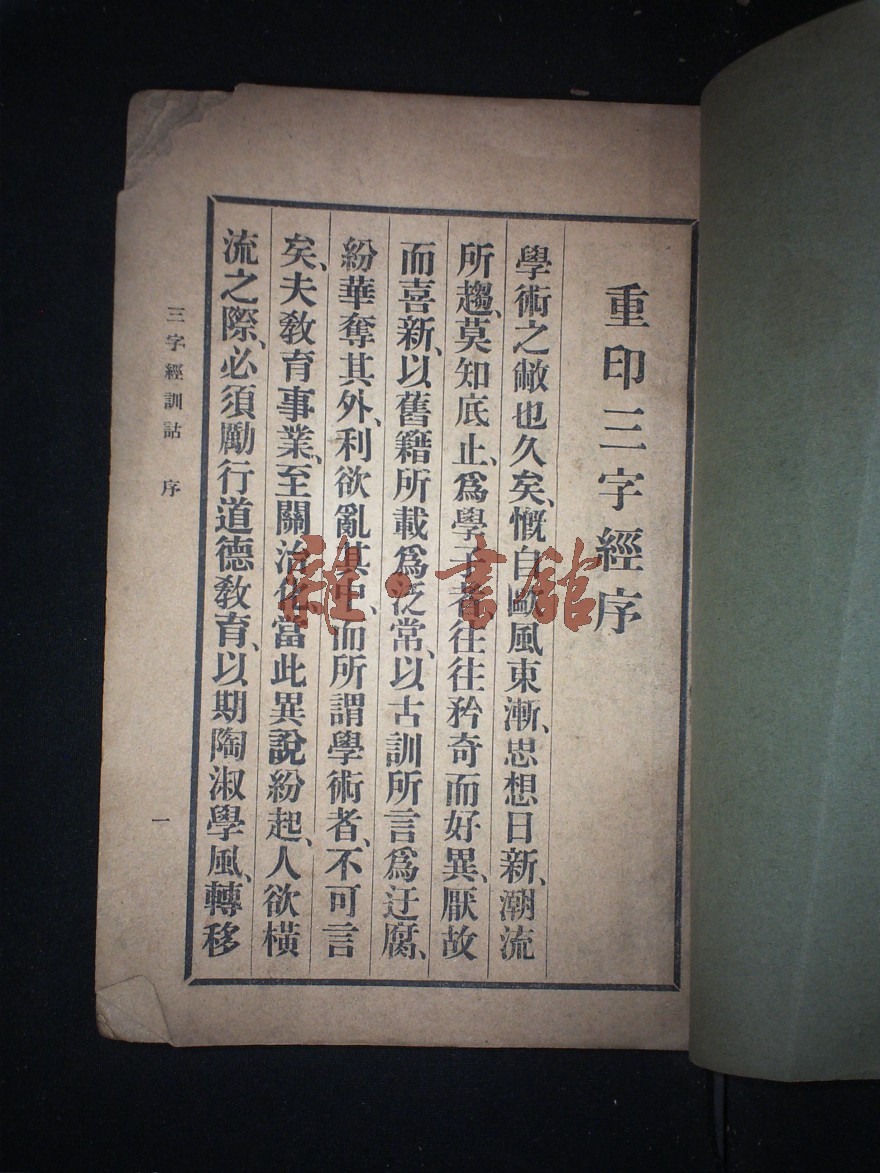 重印三字經序
學術之敝也久矣、慨自歐風東漸、思想日新、潮流
所趨、莫知底止、爲學子者往往矜奇而好異、厭故
而喜新、以舊籍所載爲泛常、以古訓所言爲迂腐、
紛華奪其外、利欲亂其中、而所謂學術者、不可言
矣、夫敎育事業、至關治化、當此異說紛起、人欲橫
流之際、必須勵行道德敎育、以期陶淑學風、轉移
三字經訓詁 序
一
雜·書館